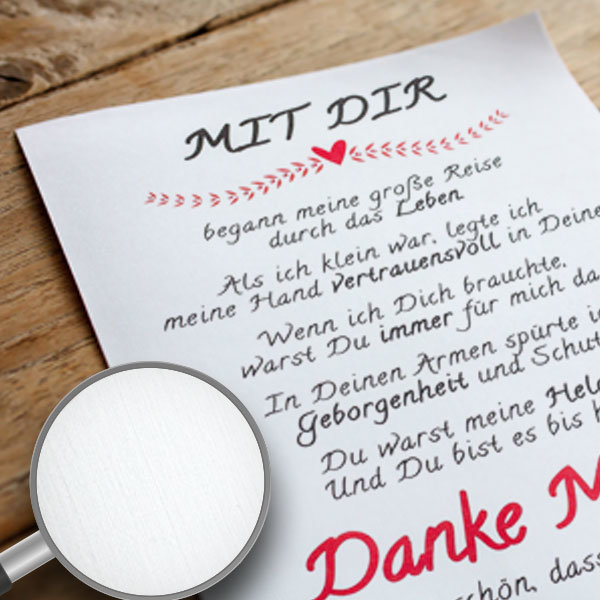 MIT DIR
begann meine große Reise
durch das Leben
Als ich klein war, legte ich
meine Hand vertrauensvoll in Deine
Wenn ich Dich brauchte,
warst Du immer für mich da
In Deinen Armen spürte
Geborgenheit und
Du warst meine
Und Du bist es bis
Danke
schön, dass